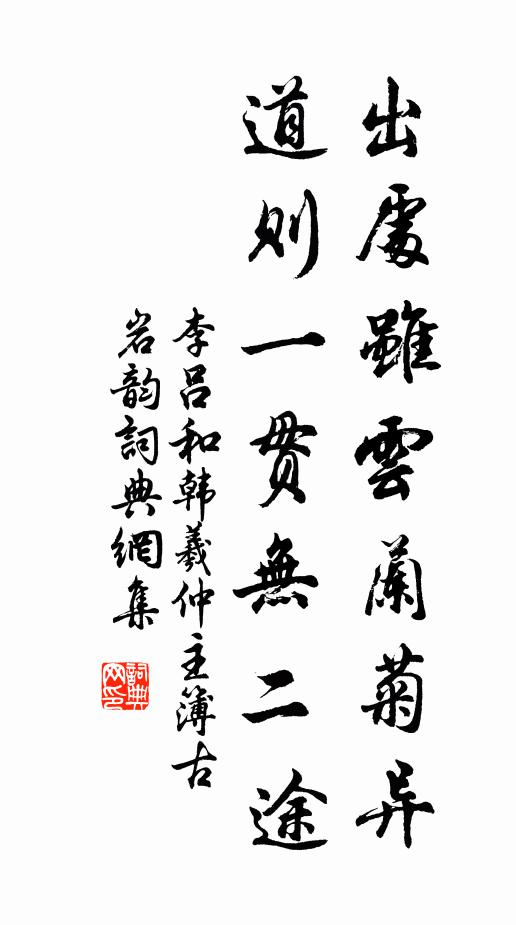 出處雖雲蘭菊异
道則一貫無二途
李吕和韩羲仲主簿古
岩韵詞典網集
詞典网印